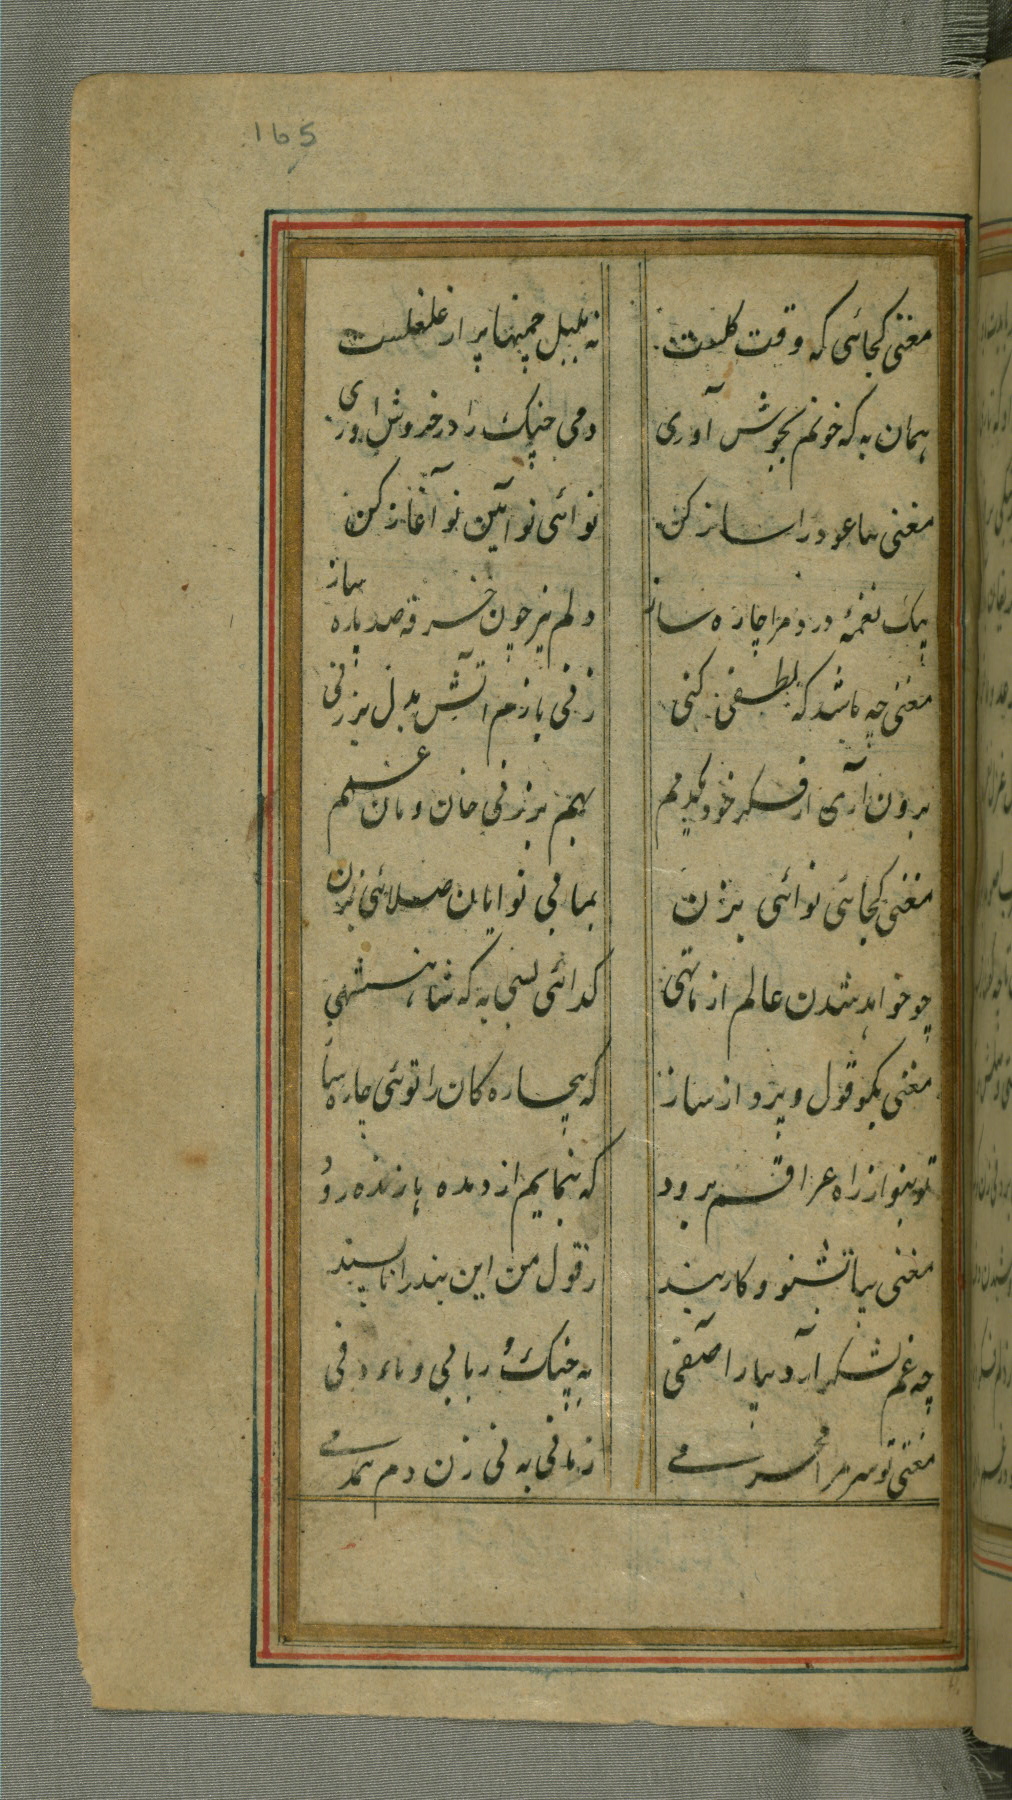 165
مغنی کجائی که وقت گلست
ز بلبل چمنها پر از غلغلست
همان به که خونم بجوش آوری
دمی چنک را در خروش اوری
مغنی بیا عود را ساز کن
نوائی نو آئین نو آغاز کن
بیک نغمهٔ درد مرا چاره ساز
دلم نیز چون خرقه صد پاره ساز
مغنی چه باشد که لطفی کنی
زنی بازم آتش بدل بر زنی
برون آری از فکر خود یکدمم
بهم بر زنی خان و مان غمم
مغنی کجائی نوائی بزن
بما بی نوایان صلائی بزن
چو خواهد شدن عالم از ما تهی
کدائی بسی به که شاهنشهی
مغنی بگو قول و بردار ساز
که بیچاره کان را توئی چاره ساز
تو بنواز راه عراقم برود
که بنمایم از دیده باز زنده رود
مغنی بیا بشنو و کار بند
ز قول من این پند را نا پسند
چه غم لشکر آرد بیارا صفی
به چنک و ربابی و نای و دفی
مغنی تو سر مرا محرمی
زمانی به نی زن دم همدمی